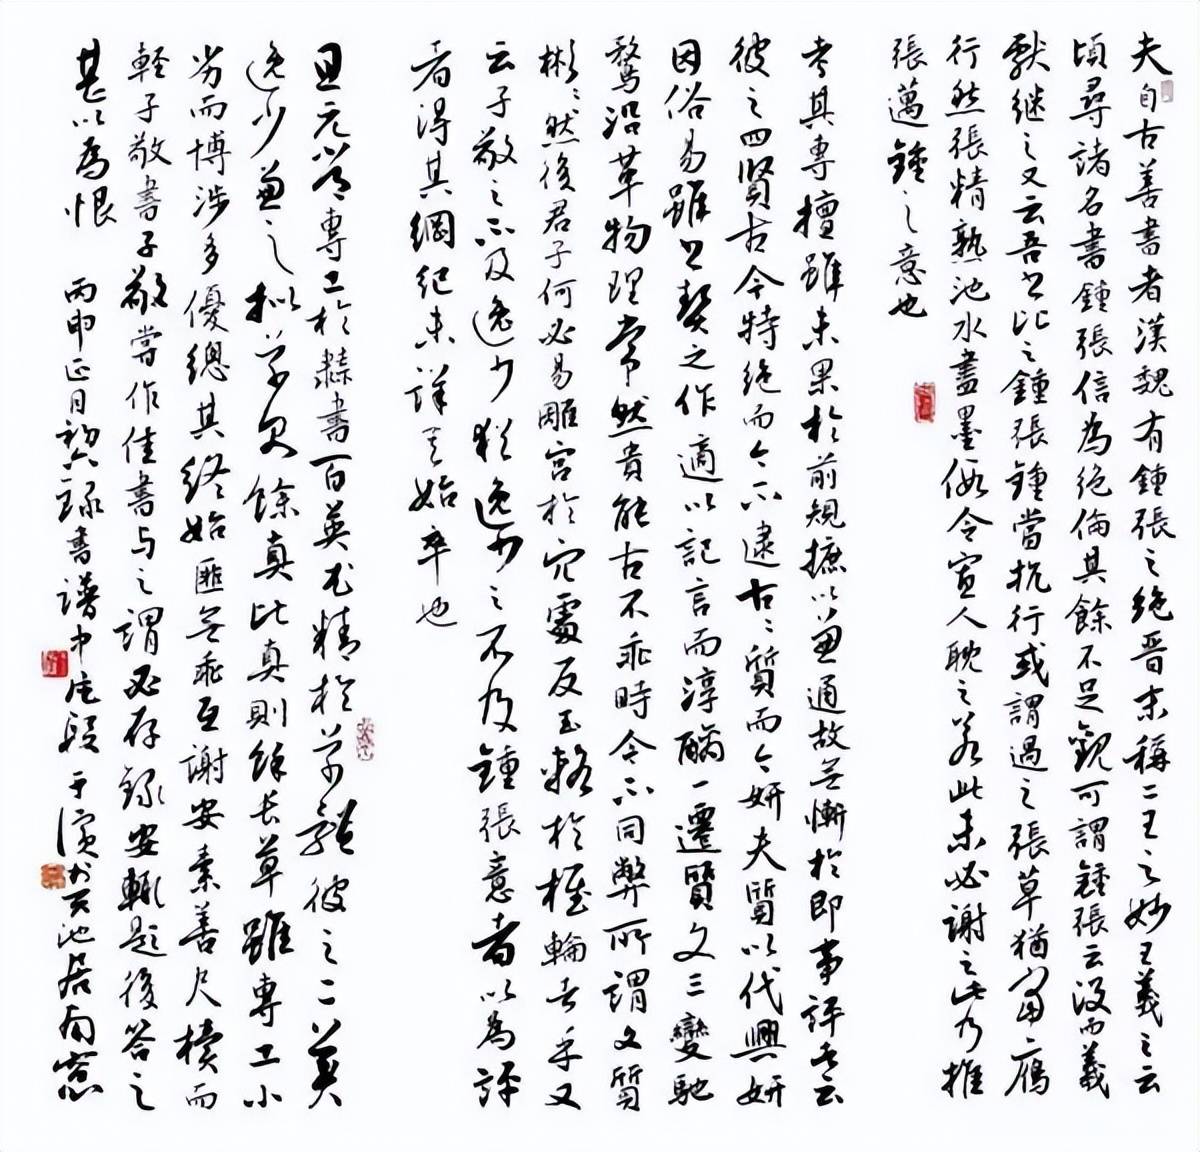 夫自古善書者漢魏有鍾張之絶晉末稱二王之妙王羲之云
頃尋諸名書鍾張信為絶倫其餘不足觀可謂鍾張云沒而羲
獻継之又云吾書比之鍾張鍾當抗行或謂過之張草猶當鴈
行然張精熟池水盡墨假令寡人耽之若此未必謝之此乃推
張邁鍾之意也
考其專擅雖未果於前規摭以兼通故無慚於即事評者云
彼之四賢古今特絶而今不逮古〻質而今妍夫質以代興妍
因俗易雖書契之作適以記言而淳醨一遷質文三變馳
騖沿革物理常然貴能古不乖時今不同弊所謂文質
彬〻然後君子何必易雕宮於穴處反玉輅於椎輪者乎又
云子敬之不及逸少猶逸少之不及鍾張意者以為評
者得其綱紀未詳其始卒也
且元常專工於隸書百英尤精於草體彼之二美
逸少兼之擬草則餘真比真則餘長草雖專工小
劣而博涉多優總其終始匪無乖互謝安素善尺櫝而
輕子敬書子敬嘗作佳書與之謂必存錄安輒題後答之
甚以為恨 丙申正月初六録書譜中一段 于濱於天池居南窗